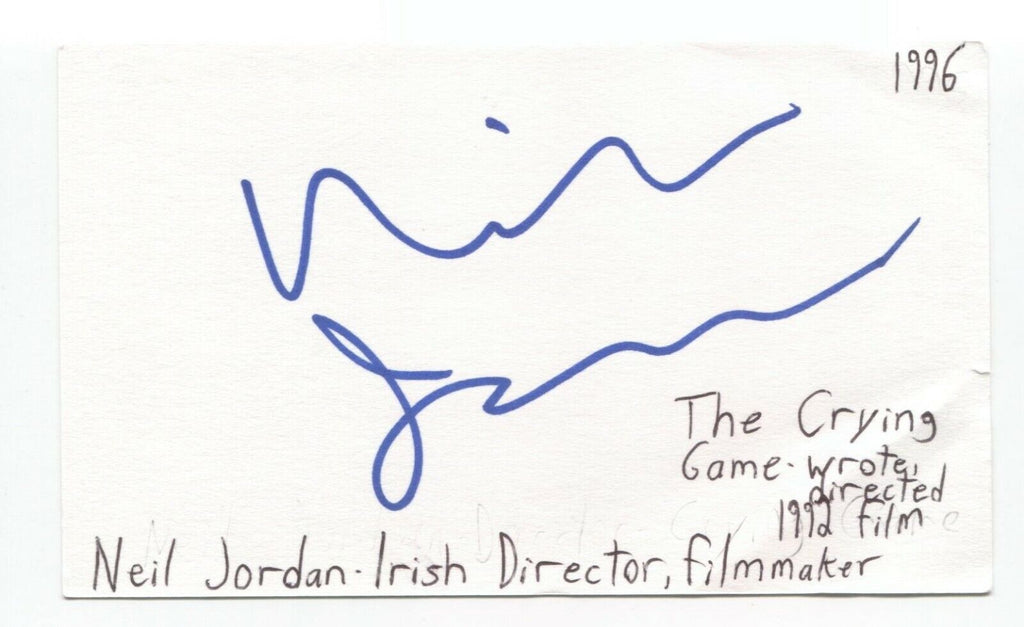 1996
Neil
Jordan
The Crying
Game - wrote,
directed
1992 film
Neil Jordan - Irish Director, filmmaker